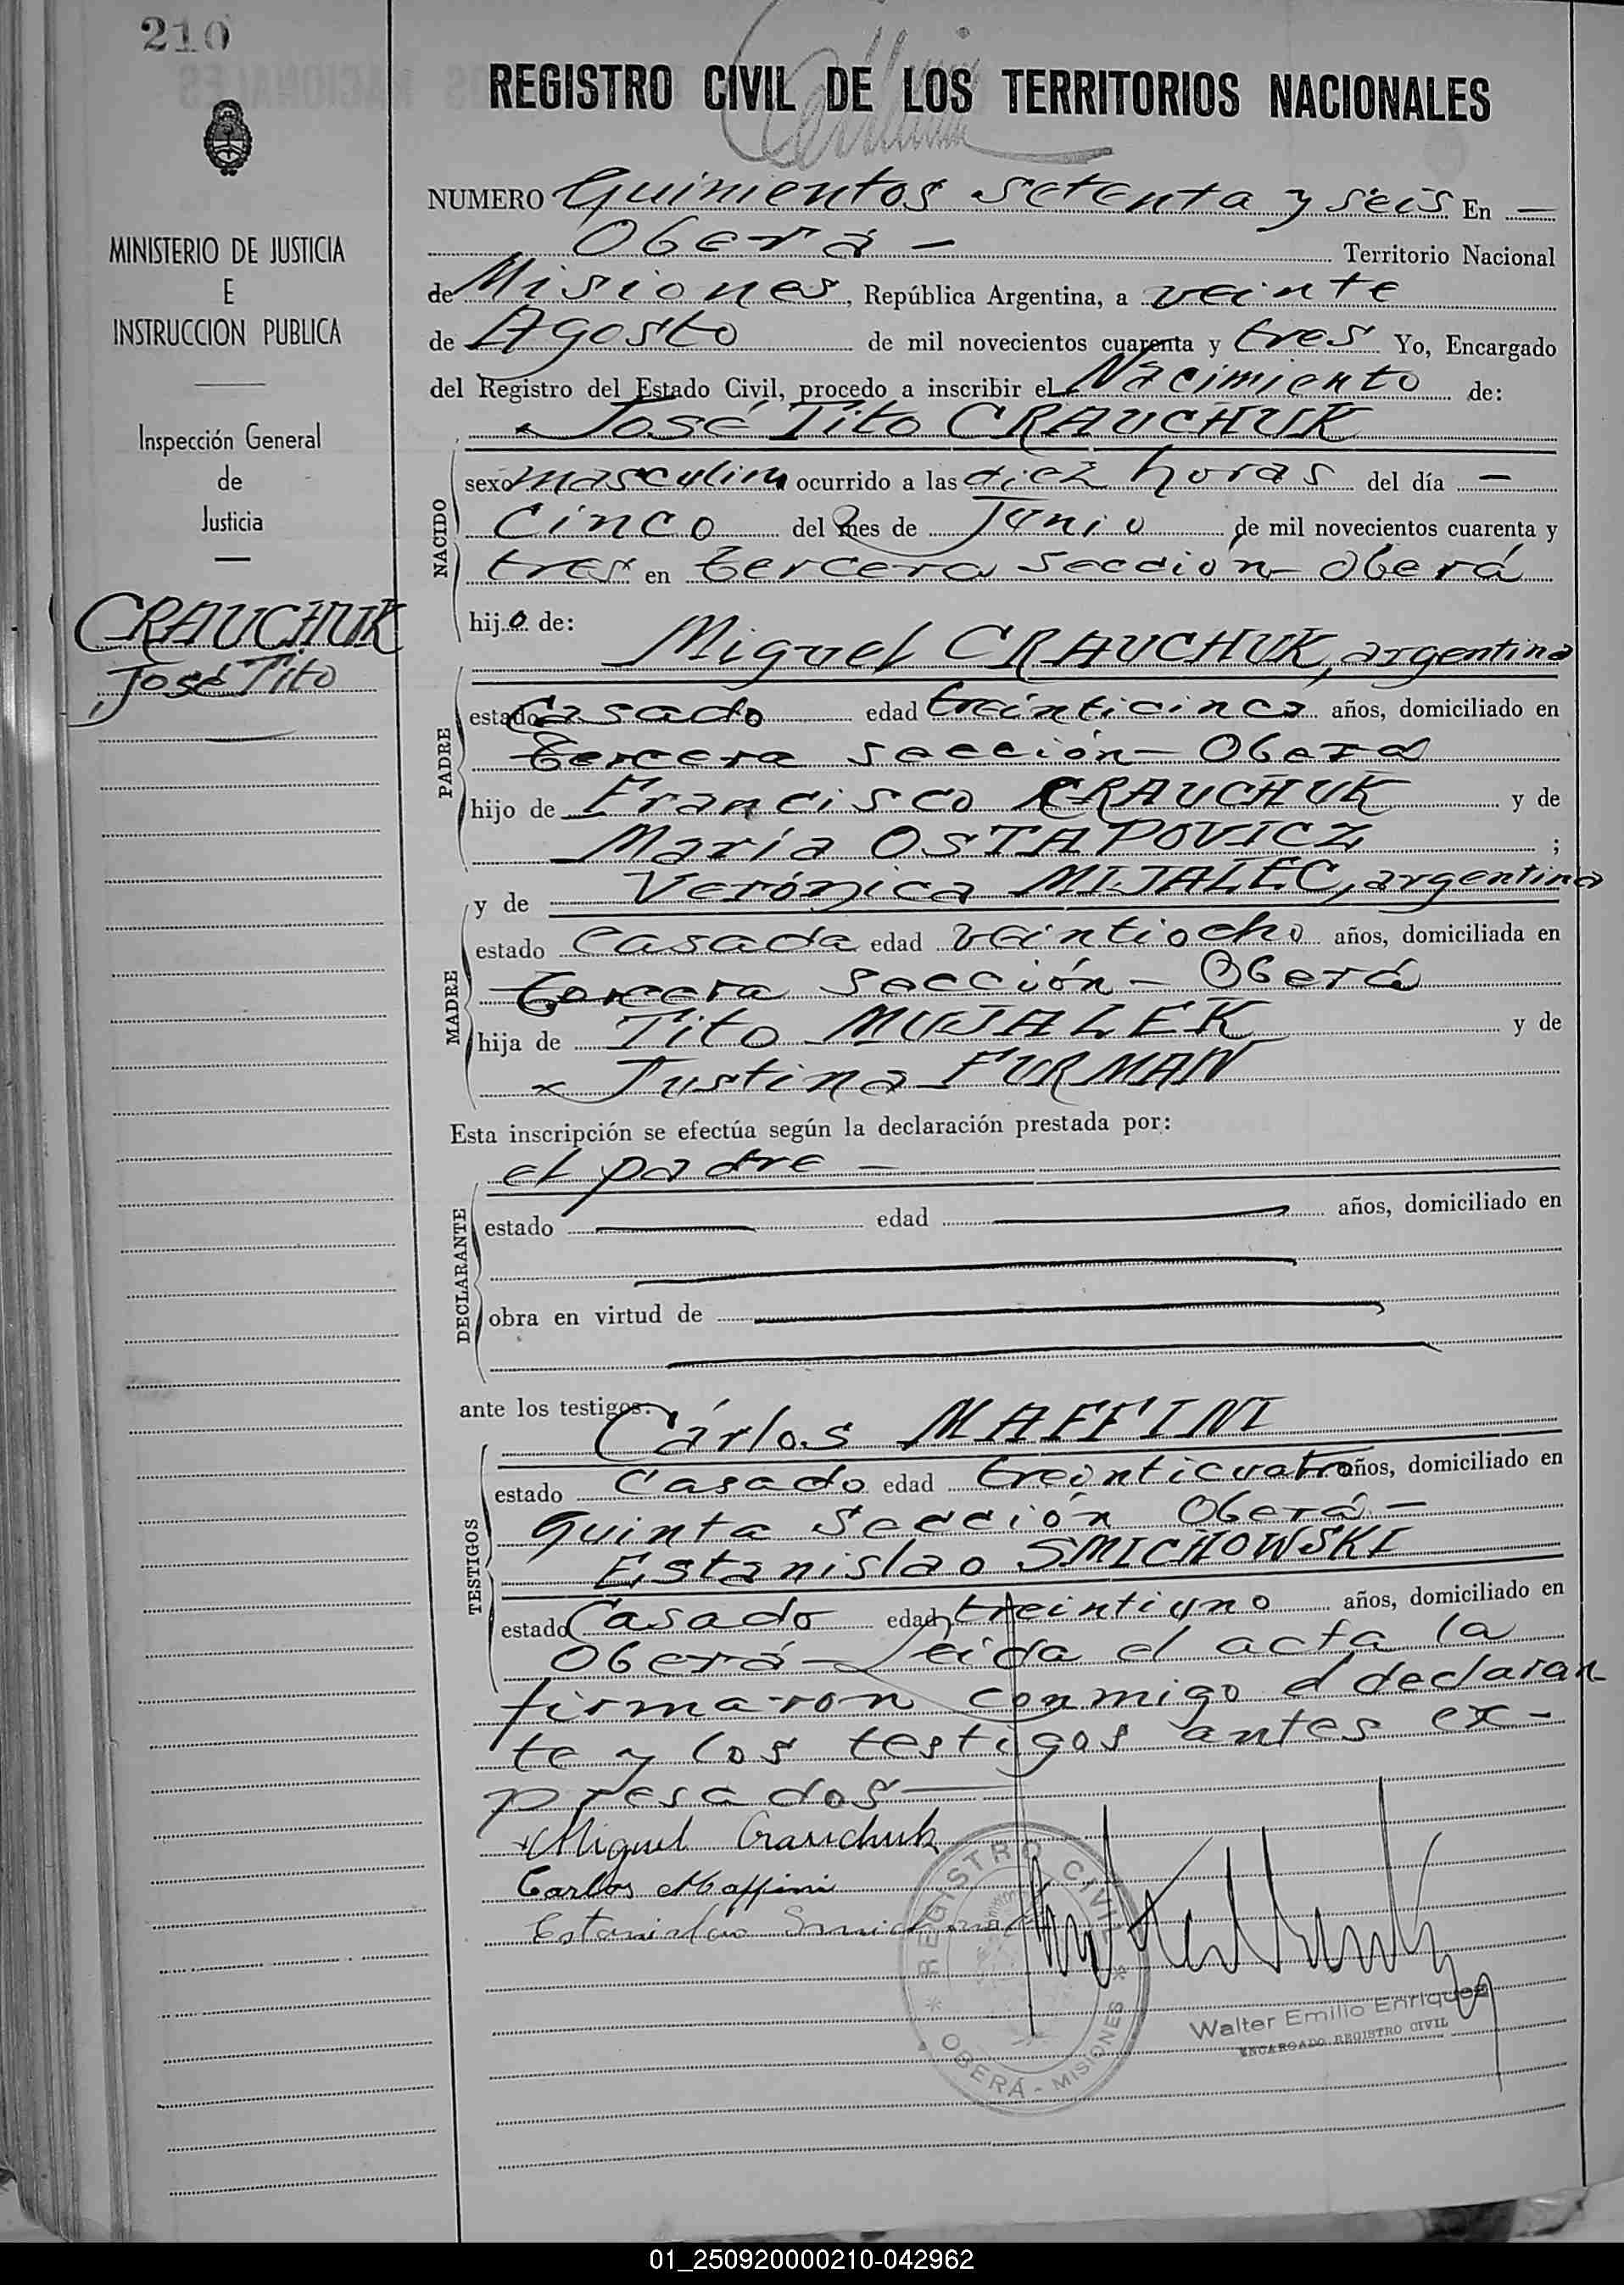 210
REGISTRO CIVIL DE LOS TERRITORIOS NACIONALES
MINISTERIO DE JUSTICIA
E
INSTRUCCION PUBLICA
Inspección General
de
Justicia
CRAUCHUK
José Tito
NUMERO Quinientos setenta y seis En —
Oberá — Territorio Nacional
de Misiones, República Argentina, a veinte
de Agosto de mil novecientos cuarenta y tres Yo, Encargado
del Registro del Estado Civil, procedo a inscribir el Nacimiento de:
José Tito CRAUCHUK
NACIDO
sexo masculino ocurrido a las diez horas del día —
cinco del mes de Junio de mil novecientos cuarenta y
tres en tercera sección - Oberá
hijo de:
Miguel CRAUCHUK, argentino
PADRE
estado Casado edad treinticinco años, domiciliado en
tercera sección - Oberá
hijo de Francisco CRAUCHUK y de
María OSTAPOVICZ ;
y de Verónica MIJALEC, argentina
MADRE
estado casada edad veintiocho años, domiciliada en
tercera sección - Oberá
hija de Tito MUJALEK y de
x Justina FURMAN
Esta inscripción se efectúa según la declaración prestada por:
el padre —
DECLARANTE
estado — edad — años, domiciliado en
obra en virtud de —
ante los testigos:
Cárlos MAFFINI
TESTIGOS
estado Casado edad treinticuatro años, domiciliado en
quinta sección Oberá -
Estanislao SMICHOWSKI
estado Casado edad treintiuno años, domiciliado en
Oberá - Leida el acta la
firmaron conmigo el declaran
te y los testigos antes ex-
presados —
Miguel Crauchuk
Carlos Maffini
Estanislao
REGISTRO CIVIL
OBERÁ - MISIONES
Walter Emilio Enriquez
ENCARGADO REGISTRO CIVIL
01_250920000210-042962